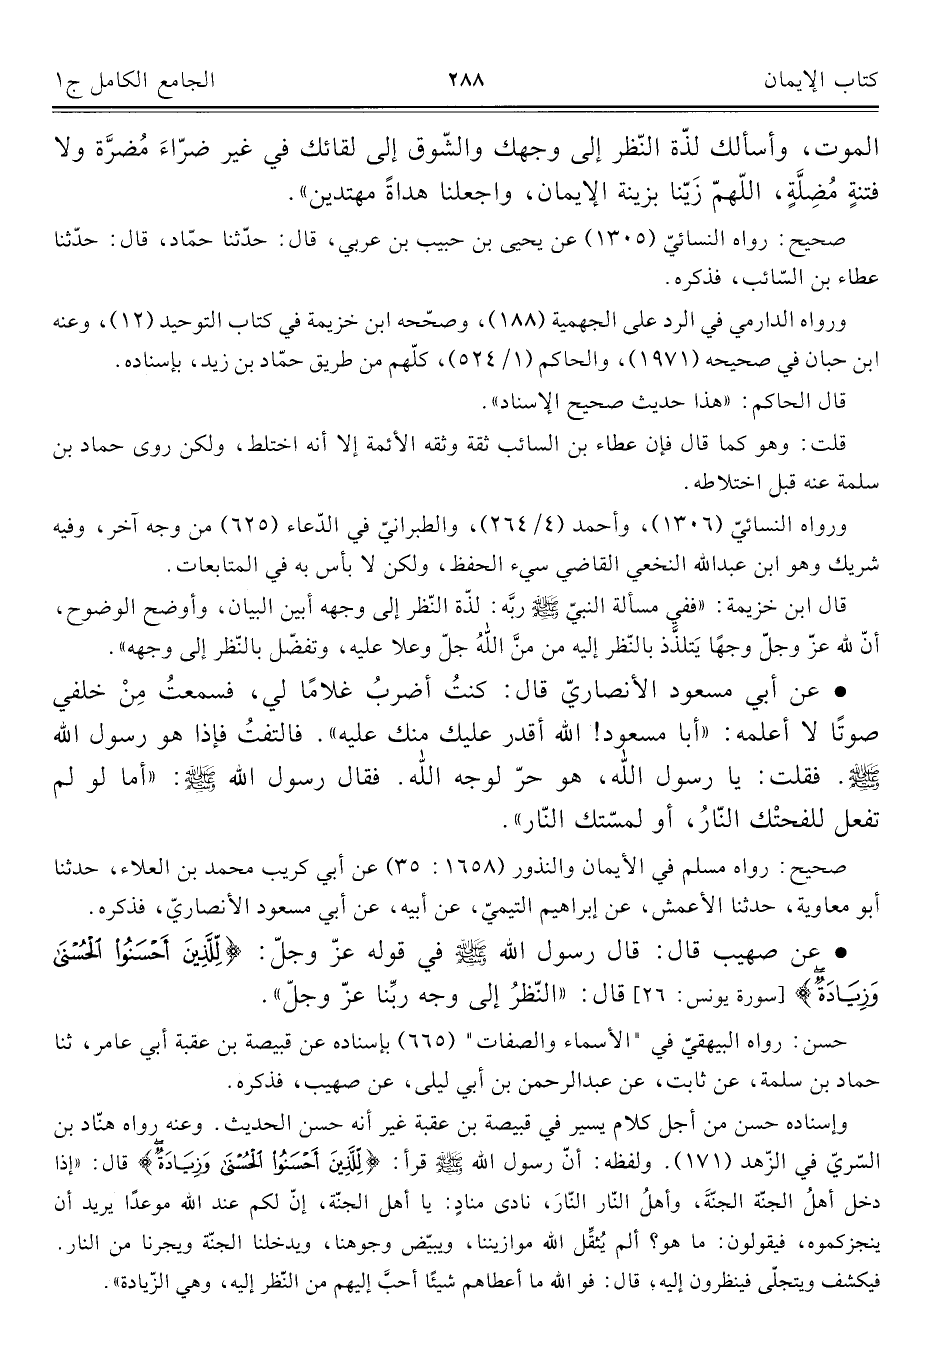 كتاب الإيمان ٢٨٨ الجامع الكامل ج١
الموت، وأسألك لذّة النّظر إلى وجهك والشّوق إلى لقائك في غير ضرّاءَ مُضرَّة ولا
فتنةٍ مُضِلَّةٍ، اللّهمّ زَيّنا بزينة الإيمان، واجعلنا هداةً مهتدين».
صحيح: رواه النسائيّ (١٣٠٥) عن يحيى بن حبيب بن عربي، قال: حدّثنا حمّاد، قال: حدّثنا
عطاء بن السّائب، فذكره.
ورواه الدارمي في الرد على الجهمية (١٨٨)، وصحّحه ابن خزيمة في كتاب التوحيد (١٢)، وعنه
ابن حبان في صحيحه (١٩٧١)، والحاكم (١/ ٥٢٤)، كلّهم من طريق حمّاد بن زيد، بإسناده.
قال الحاكم: «هذا حديث صحيح الإسناد».
قلت: وهو كما قال فإن عطاء بن السائب ثقة وثقه الأئمة إلا أنه اختلط، ولكن روى حماد بن
سلمة عنه قبل اختلاطه.
ورواه النسائيّ (١٣٠٦)، وأحمد (٤/ ٢٦٤)، والطبرانيّ في الدّعاء (٦٢٥) من وجه آخر، وفيه
شريك وهو ابن عبدالله النخعي القاضي سيء الحفظ، ولكن لا بأس به في المتابعات.
قال ابن خزيمة: «ففي مسألة النبيّ ﷺ ربَّه: لذّة النّظر إلى وجهه أبين البيان، وأوضح الوضوح،
أنّ لله عزّ وجلّ وجهًا يَتلذَّذ بالنّظر إليه من منَّ اللهُ جلّ وعلا عليه، وتفضّل بالنّظر إلى وجهه».
• عن أبي مسعود الأنصاريّ قال: كنتُ أضربُ غلامًا لي، فسمعتُ مِنْ خلفي
صوتًا لا أعلمه: «أبا مسعود! الله أقدر عليك منك عليه». فالتفتُ فإذا هو رسول الله
ﷺ. فقلت: يا رسول الله، هو حرّ لوجه الله. فقال رسول الله ﷺ: «أما لو لم
تفعل للفحتْك النّارُ، أو لمسّتك النّار».
صحيح: رواه مسلم في الأيمان والنذور (١٦٥٨: ٣٥) عن أبي كريب محمد بن العلاء، حدثنا
أبو معاوية، حدثنا الأعمش، عن إبراهيم التيميّ، عن أبيه، عن أبي مسعود الأنصاريّ، فذكره.
• عن صهيب قال: قال رسول الله ﷺ في قوله عزّ وجلّ: ﴿لِّلَّذِينَ أَحۡسَنُواْ ٱلۡحُسۡنَىٰ
وَزِيَادَةٞۖ﴾ [سورة يونس: ٢٦] قال: «النّظرُ إلى وجه ربِّنا عزّ وجلّ».
حسن: رواه البيهقيّ في "الأسماء والصفات" (٦٦٥) بإسناده عن قبيصة بن عقبة أبي عامر، ثنا
حماد بن سلمة، عن ثابت، عن عبدالرحمن بن أبي ليلى، عن صهيب، فذكره.
وإسناده حسن من أجل كلام يسير في قبيصة بن عقبة غير أنه حسن الحديث. وعنه رواه هنّاد بن
السّريّ في الزّهد (١٧١). ولفظه: أنّ رسول الله ﷺ قرأ: ﴿لِّلَّذِينَ أَحۡسَنُواْ ٱلۡحُسۡنَىٰ وَزِيَادَةٞۖ﴾ قال: «إذا
دخل أهلُ الجنّة الجنَّةَ، وأهلُ النّار النّارَ، نادى منادٍ: يا أهل الجنّة، إنّ لكم عند الله موعدًا يريد أن
ينجزكموه، فيقولون: ما هو؟ ألم يُثقِّل الله موازيننا، ويبيّض وجوهنا، ويدخلنا الجنّة ويجرنا من النار.
فيكشف ويتجلّى فينظرون إليه، قال: فو الله ما أعطاهم شيئًا أحبَّ إليهم من النّظر إليه، وهي الزّيادة».